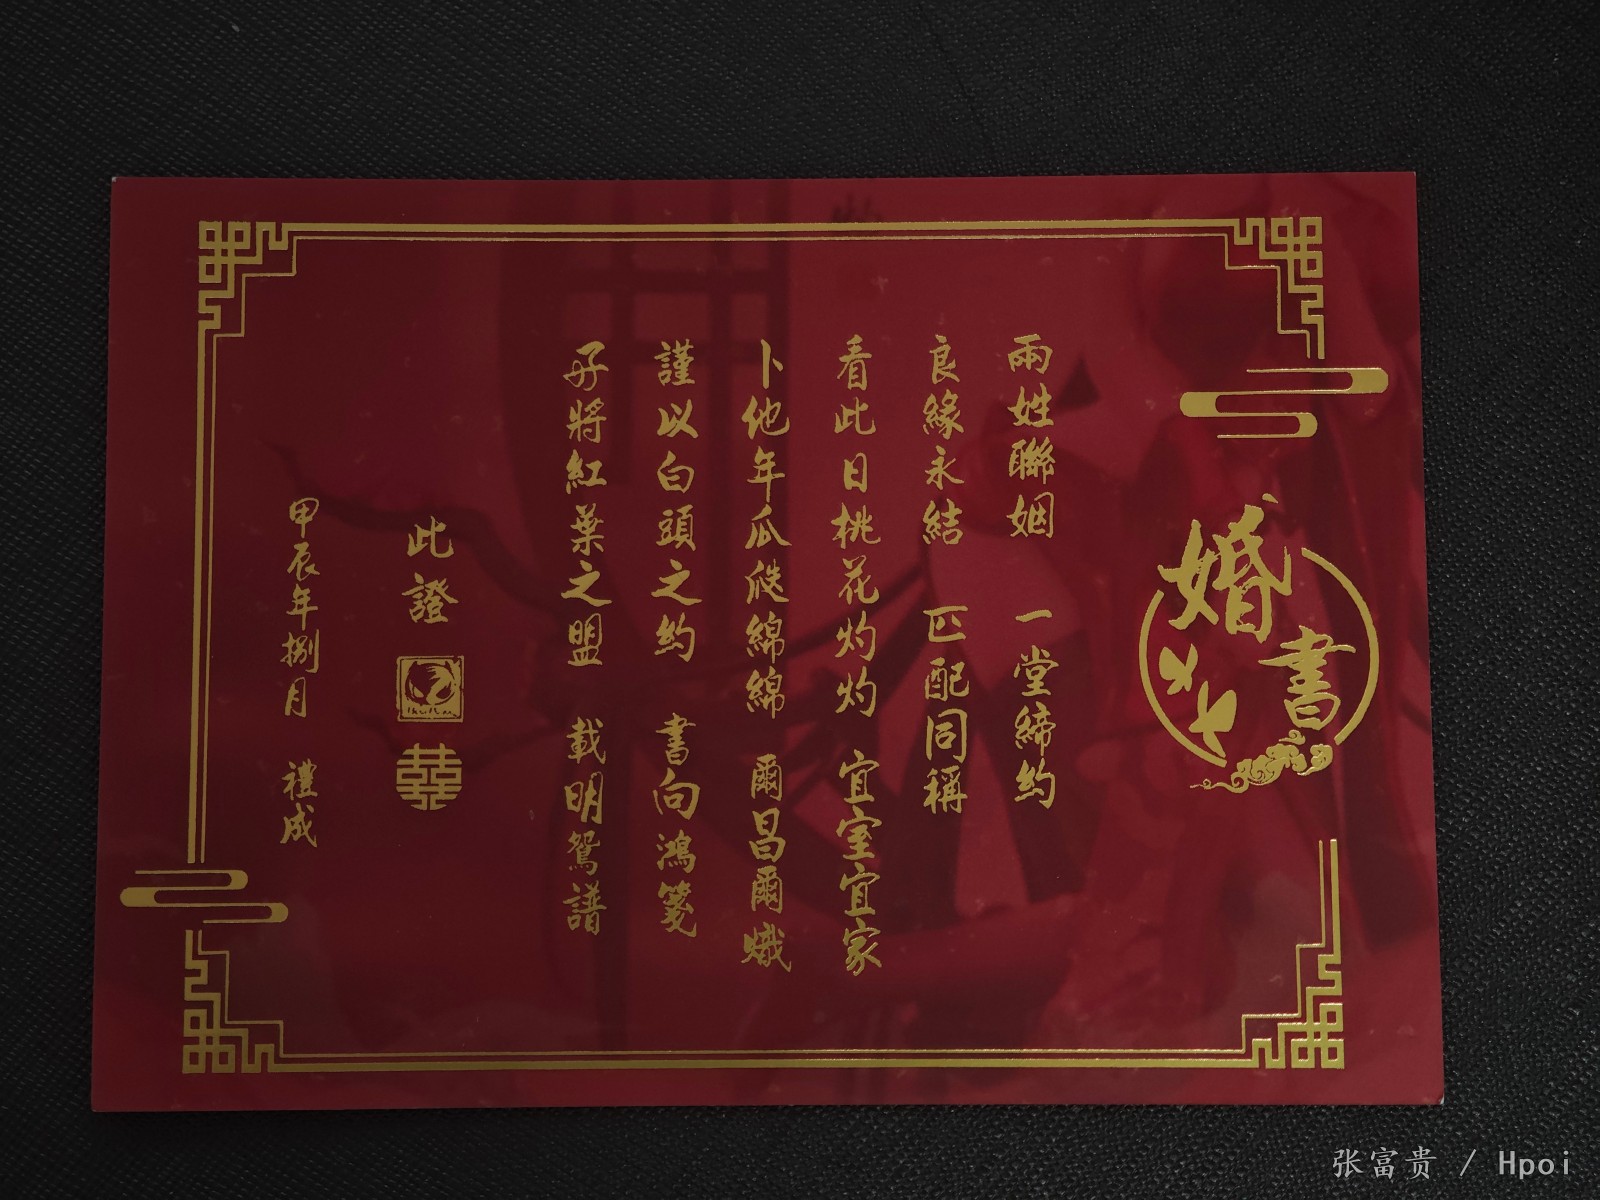 婚書
兩姓聯姻 一堂締約
良緣永結 匹配同稱
看此日桃花灼灼 宜室宜家
卜他年瓜瓞綿綿 爾昌爾熾
謹以白頭之約 書向鴻箋
好將紅葉之盟 載明鴛譜
此證
囍
甲辰年捌月 禮成
张富贵 / Hpoi